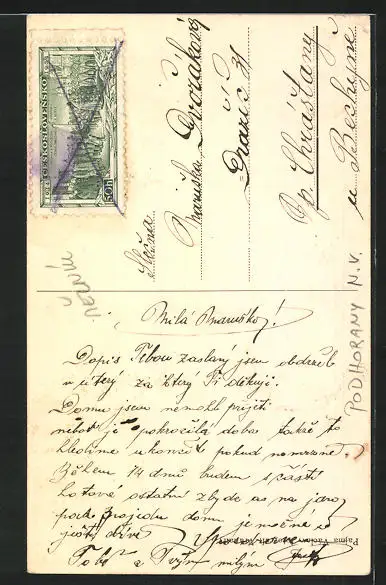 ČESKOSLOVENSKO
50 h
Slečna
Maruška Dvořáková
Dražíc 31
p. Chrášťany
u Bechyně
MĚLNÍK
PODHORANY N.V.
Milá Maruško!
Dopis Tebou zaslaný jsem obdržel
v úterý za který Ti děkuji.
Domu jsem nemohl přijeti
neboť je pokročilá doba takže to
hledíme ukončit pokud nemrzne.
Během 14 dnů budem s částí
hotové ostatní zbyde as na jaro
pak pojedu domu je možné i
ještě dříve
Tobě